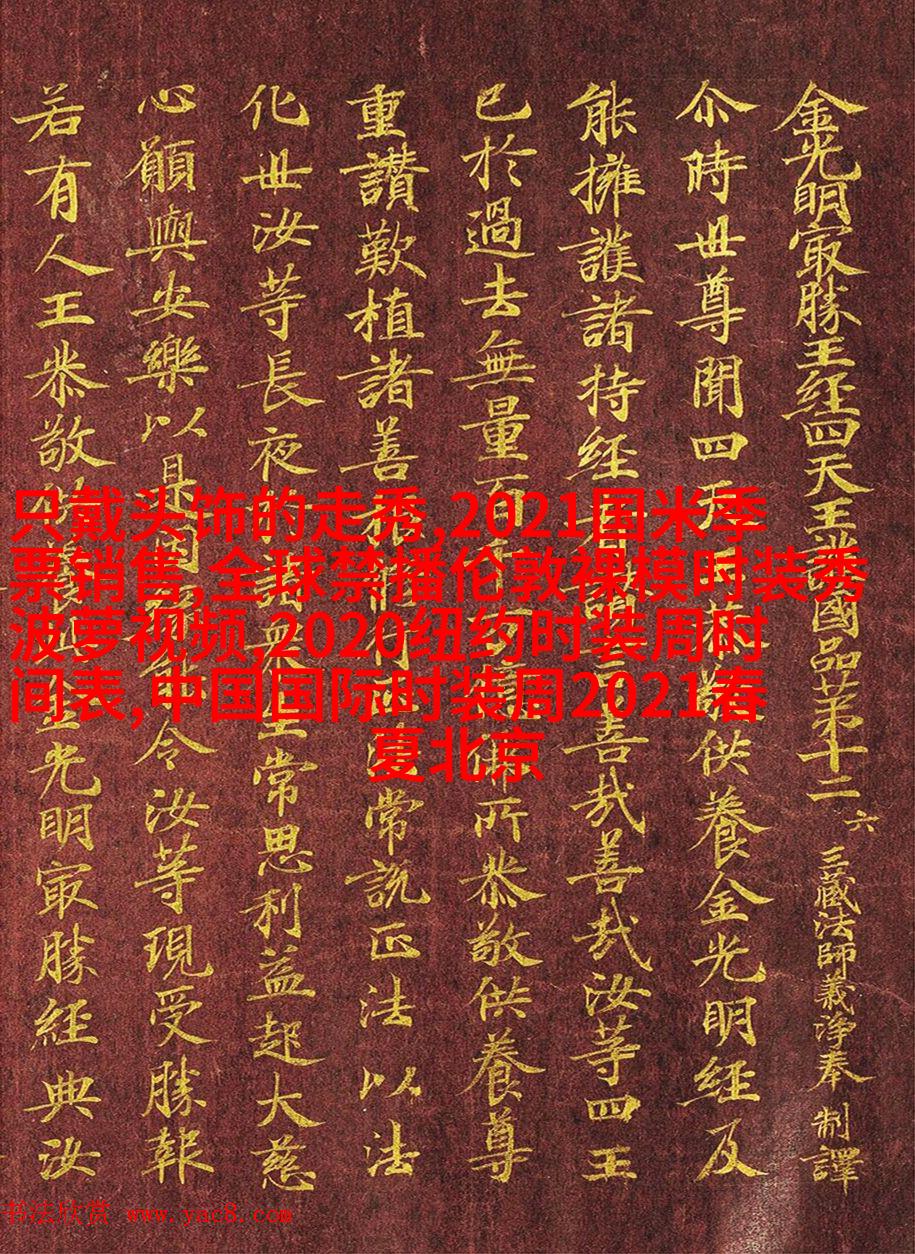 金光明冣勝王経四天王國品苐十二 六 三藏法師義淨奉 制譯
尒時世尊聞四天供養金光明経及
能擁護諸持経善哉善哉汝等四王
已於過去無量所恭敬供養尊
重讚歎植諸善常說正法以法
化世汝等長夜常思利益起大慈
心願與安樂以是令汝等現受勝報
若有人王恭敬光明冣勝経典汝
只戴头饰的走秀,2021国米季
票销售,全球禁播伦敦裸模时装秀
波萝视频,2020纽约时装周时
间表,中国国际时装周2021春
夏北京
书法欣赏 www.yac8.com